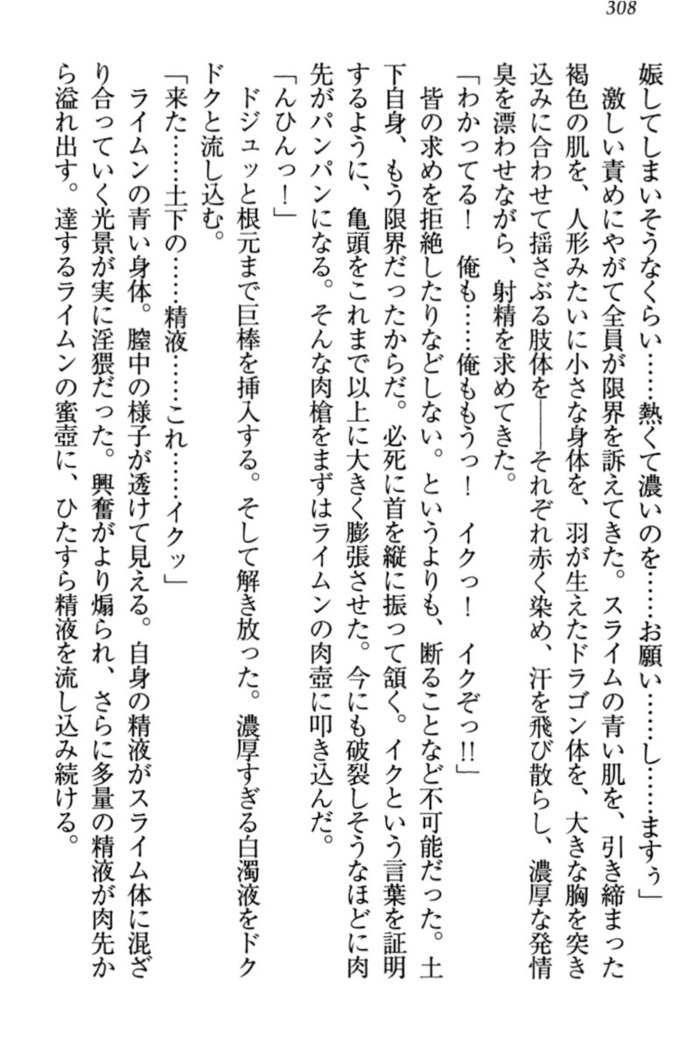 308
娠してしまいそうなくらい……熱くて濃いのを……お願い……し……ますぅ」
激しい責めにやがて全員が限界を訴えてきた。スライムの青い肌を、引き締まった
褐色の肌を、人形みたいに小さな身体を、羽が生えたドラゴン体を、大きな胸を突き
込みに合わせて揺さぶる肢体を――それぞれ赤く染め、汗を飛び散らし、濃厚な発情
臭を漂わせながら、射精を求めてきた。
「わかってる！　俺も……俺ももうっ！　イクっ！　イクぞっ!!」
皆の求めを拒絶したりなどしない。というよりも、断ることなど不可能だった。土
下自身、もう限界だったからだ。必死に首を縦に振って頷く。イクという言葉を証明
するように、亀頭をこれまで以上に大きく膨張させた。今にも破裂しそうなほどに肉
先がパンパンになる。そんな肉槍をまずはライムンの肉壺に叩き込んだ。
「んひんっ！」
ドジュッと根元まで巨棒を挿入する。そして解き放った。濃厚すぎる白濁液をドク
ドクと流し込む。
「来た……土下の……精液……これ……イクッ」
ライムンの青い身体。膣中の様子が透けて見える。自身の精液がスライム体に混ざ
り合っていく光景が実に淫猥だった。興奮がより煽られ、さらに多量の精液が肉先か
ら溢れ出す。達するライムンの蜜壺に、ひたすら精液を流し込み続ける。